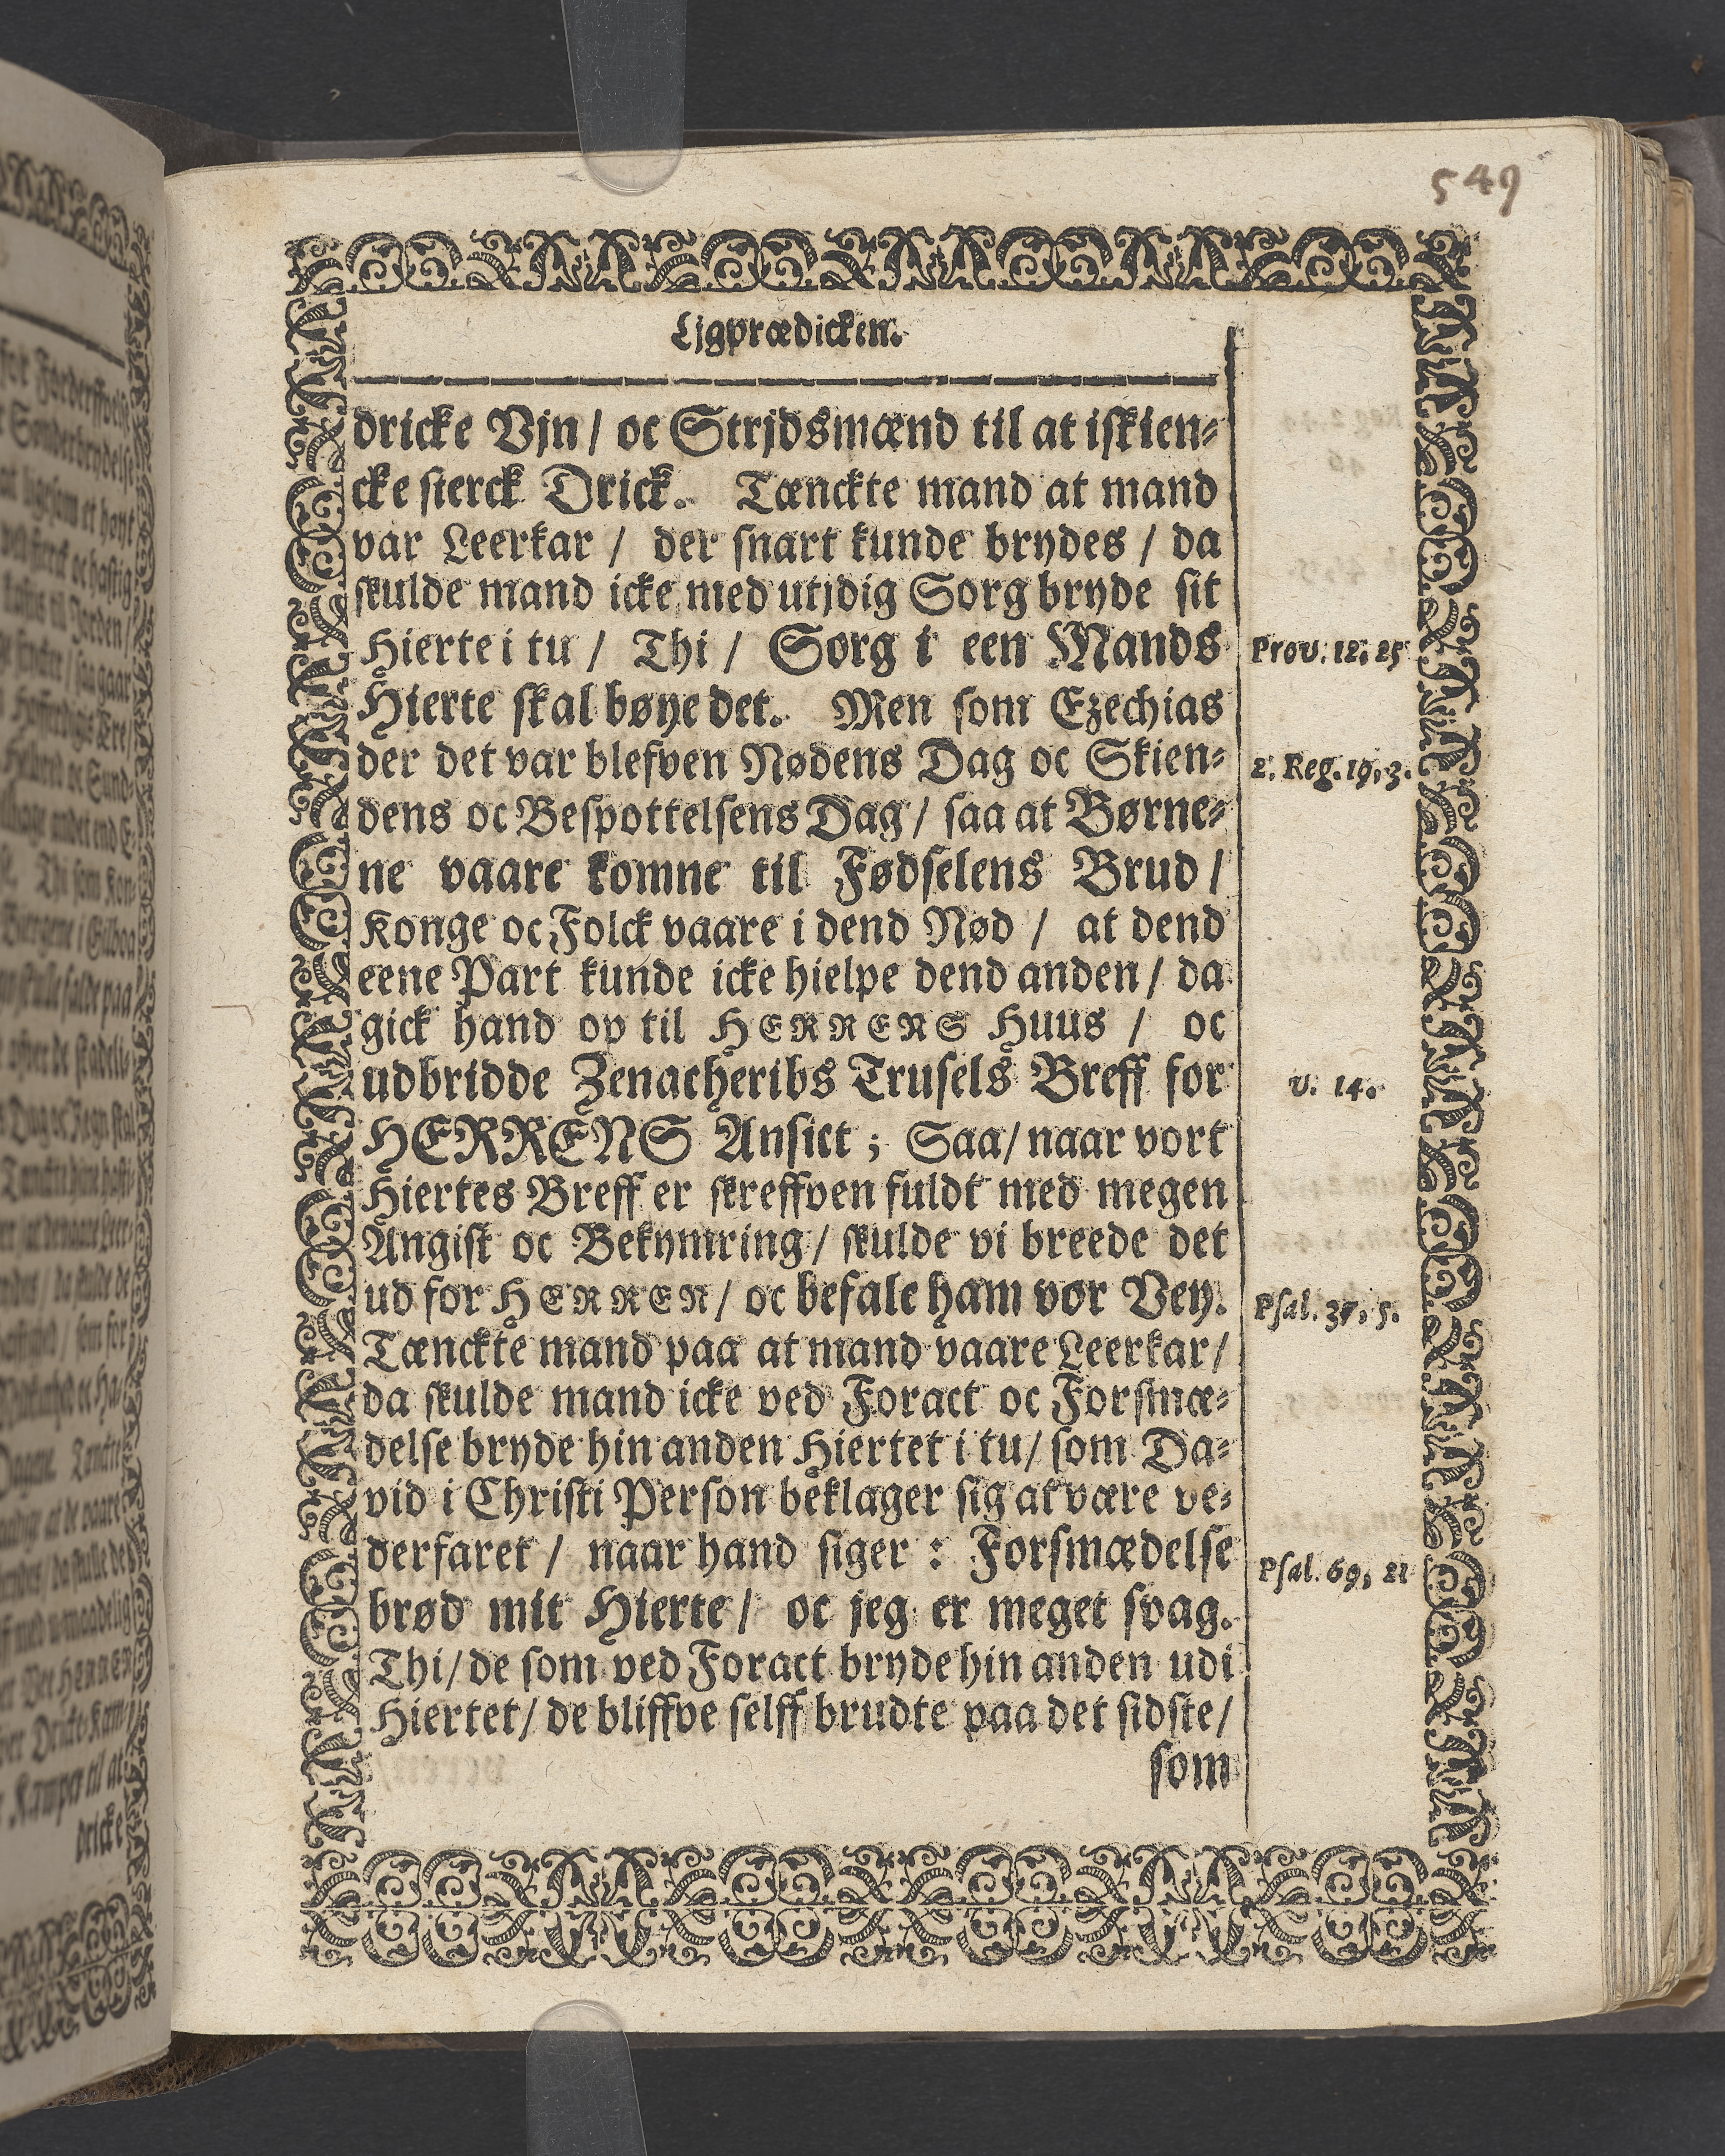 549
Ljgprædicken.
dricke Vjn / oc Strjdsmænd til at iskien-
cke sterck Drick. Tænckte mand at mand
var Leerkar / der snart kunde brydes / da
skulde mand icke med utjdig Sorg bryde sit
Hierte i tu / Thi / Sorg i een Mands
Prov. 12, 25
Hierte skal bøye det. Men som Ezechias
der det var blefven Nødens Dag oc Skien-
2. Reg. 19, 3.
dens oc Bespottelsens Dag / saa at Børne-
ne vaare komne til Fødselens Brud /
Konge oc Folck vaare i dend Nød / at dend
eene Part kunde icke hielpe dend anden / da
gick hand op til HERRENS Huus / oc
udbridde Zenacheribs Trusels Breff for
v. 14.
HERRENS Ansict ; Saa / naar vort
Hiertes Breff er skreffven fuldt med megen
Angist oc Bekymring / skulde vi breede det
ud for HERREN / oc befale ham vor Vey.
Psal. 37, 5.
Tænckte mand paa at mand vaare Leerkar /
da skulde mand icke ved Foract oc Forsmæ-
delse bryde hin anden Hiertet i tu / som Da-
vid i Christi Person beklager sig at være ve-
derfaret / naar hand siger : Forsmædelse
Psal. 69, 21
brød mit Hierte / oc jeg er meget svag.
Thi / de som ved Foract bryde hin anden udi
Hiertet / de bliffve selff brudte paa det sidste /
som